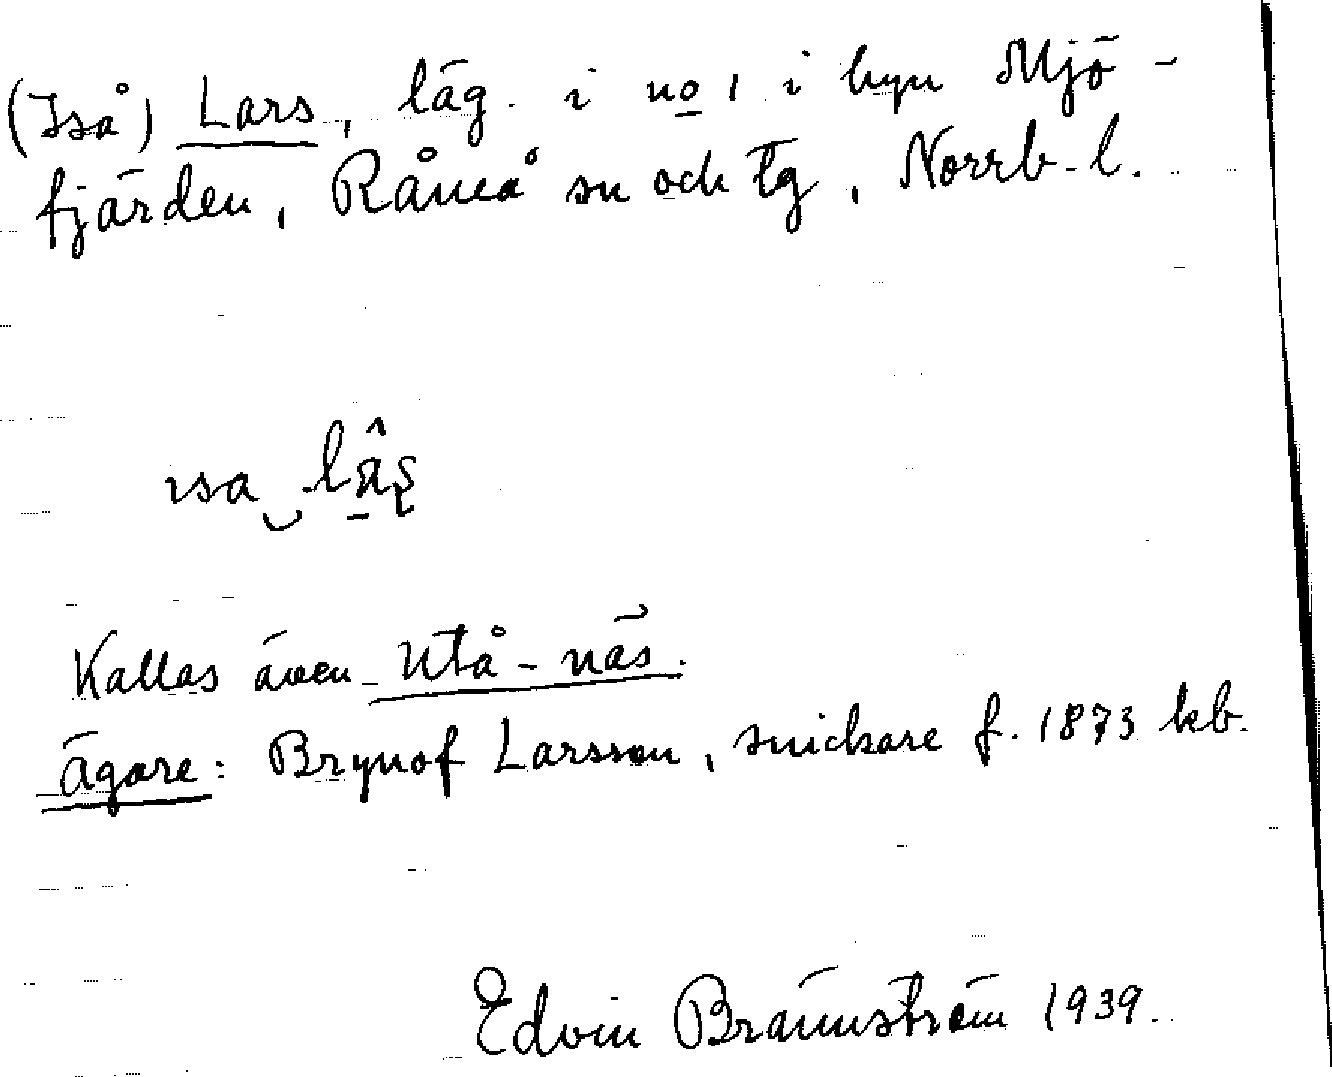 (Iså) Lars, läg. i no 1 i byn Mjö-
fjärden, Råneå sn och tg, Norrb. l.
ısa‿lâ̠ș
Kallas även Utå-näs.
Ägare: Brynof Larsson, snickare f. 1873 kb.
Edvin Brännström 1939.